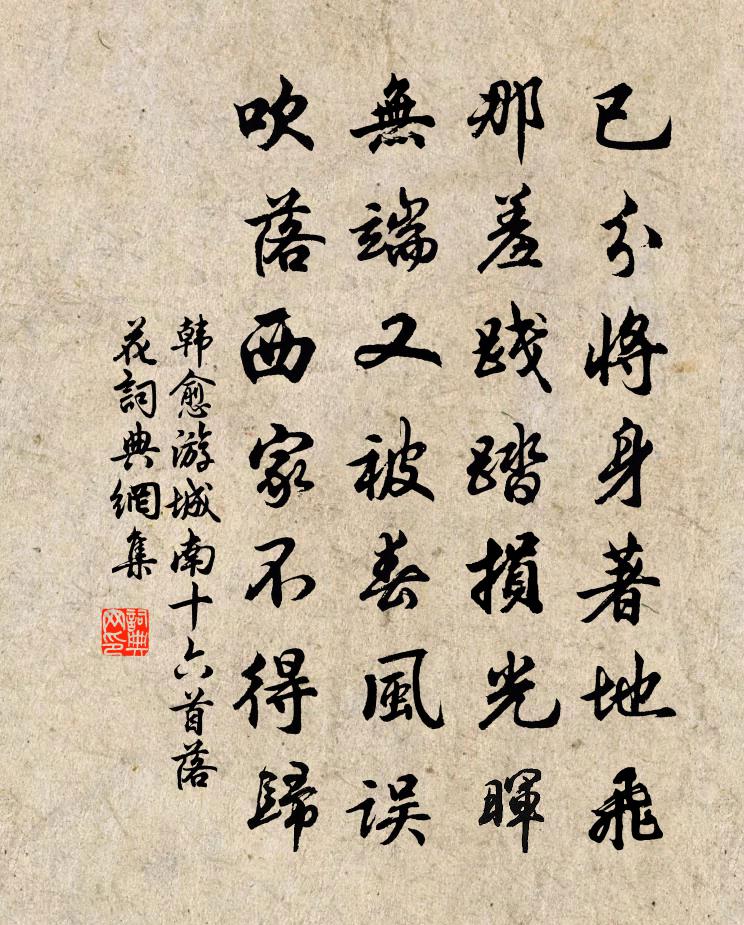 已分將身著地飛
那羞踐踏損光暉
無端又被春風误
吹落西家不得歸
韩愈游城南十六首落
花詞典網集
詞典
网印